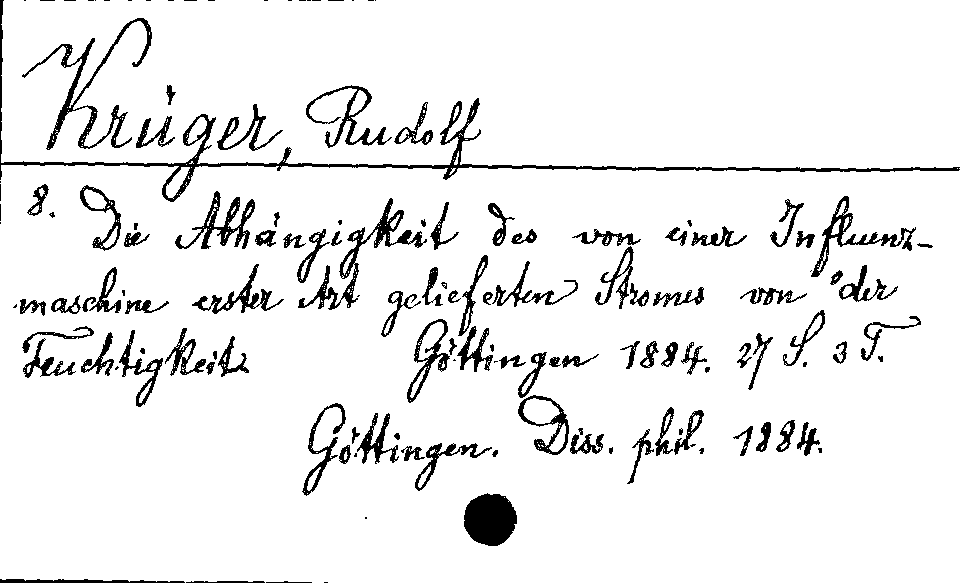 Krüger, Rudolf
8. Die Abhängigkeit des von einer Influenz-
maschine erster Art gelieferten Stromes von der
Feuchtigkeit. Göttingen 1884. 27 S. 3 T.
Göttingen. Diss. phil. 1884.